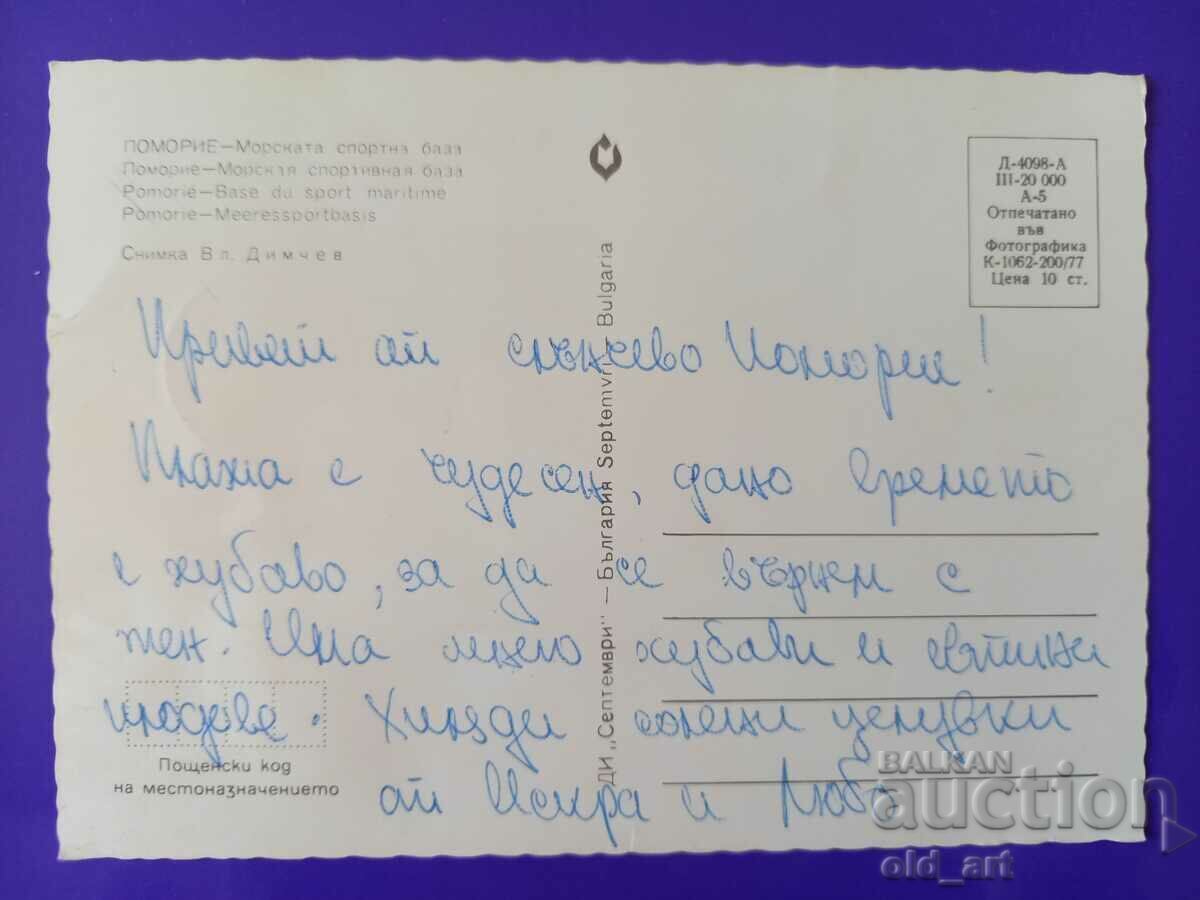 ПОМОРИЕ—Морската спортна база
Поморие—Морская спортивная база
Pomorie—Base du sport maritime
Pomorie—Meeressportbasis
Снимка Вл. Димчев
Д-4098-А
III-20 000
А-5
Отпечатано
във
Фотографика
К-1062-200/77
Цена 10 ст.
ДИ „Септември" — България Septemvri — Bulgaria
Привет от слънчево Поморие!
Плажа е чудесен, дано времето
е хубаво, за да се върнем с
тен. Има много хубави и евтини
плодове. Хиляди солени целувки
от Искра и Любо
Пощенски код
на местоназначението
BALKAN
auction
old_art